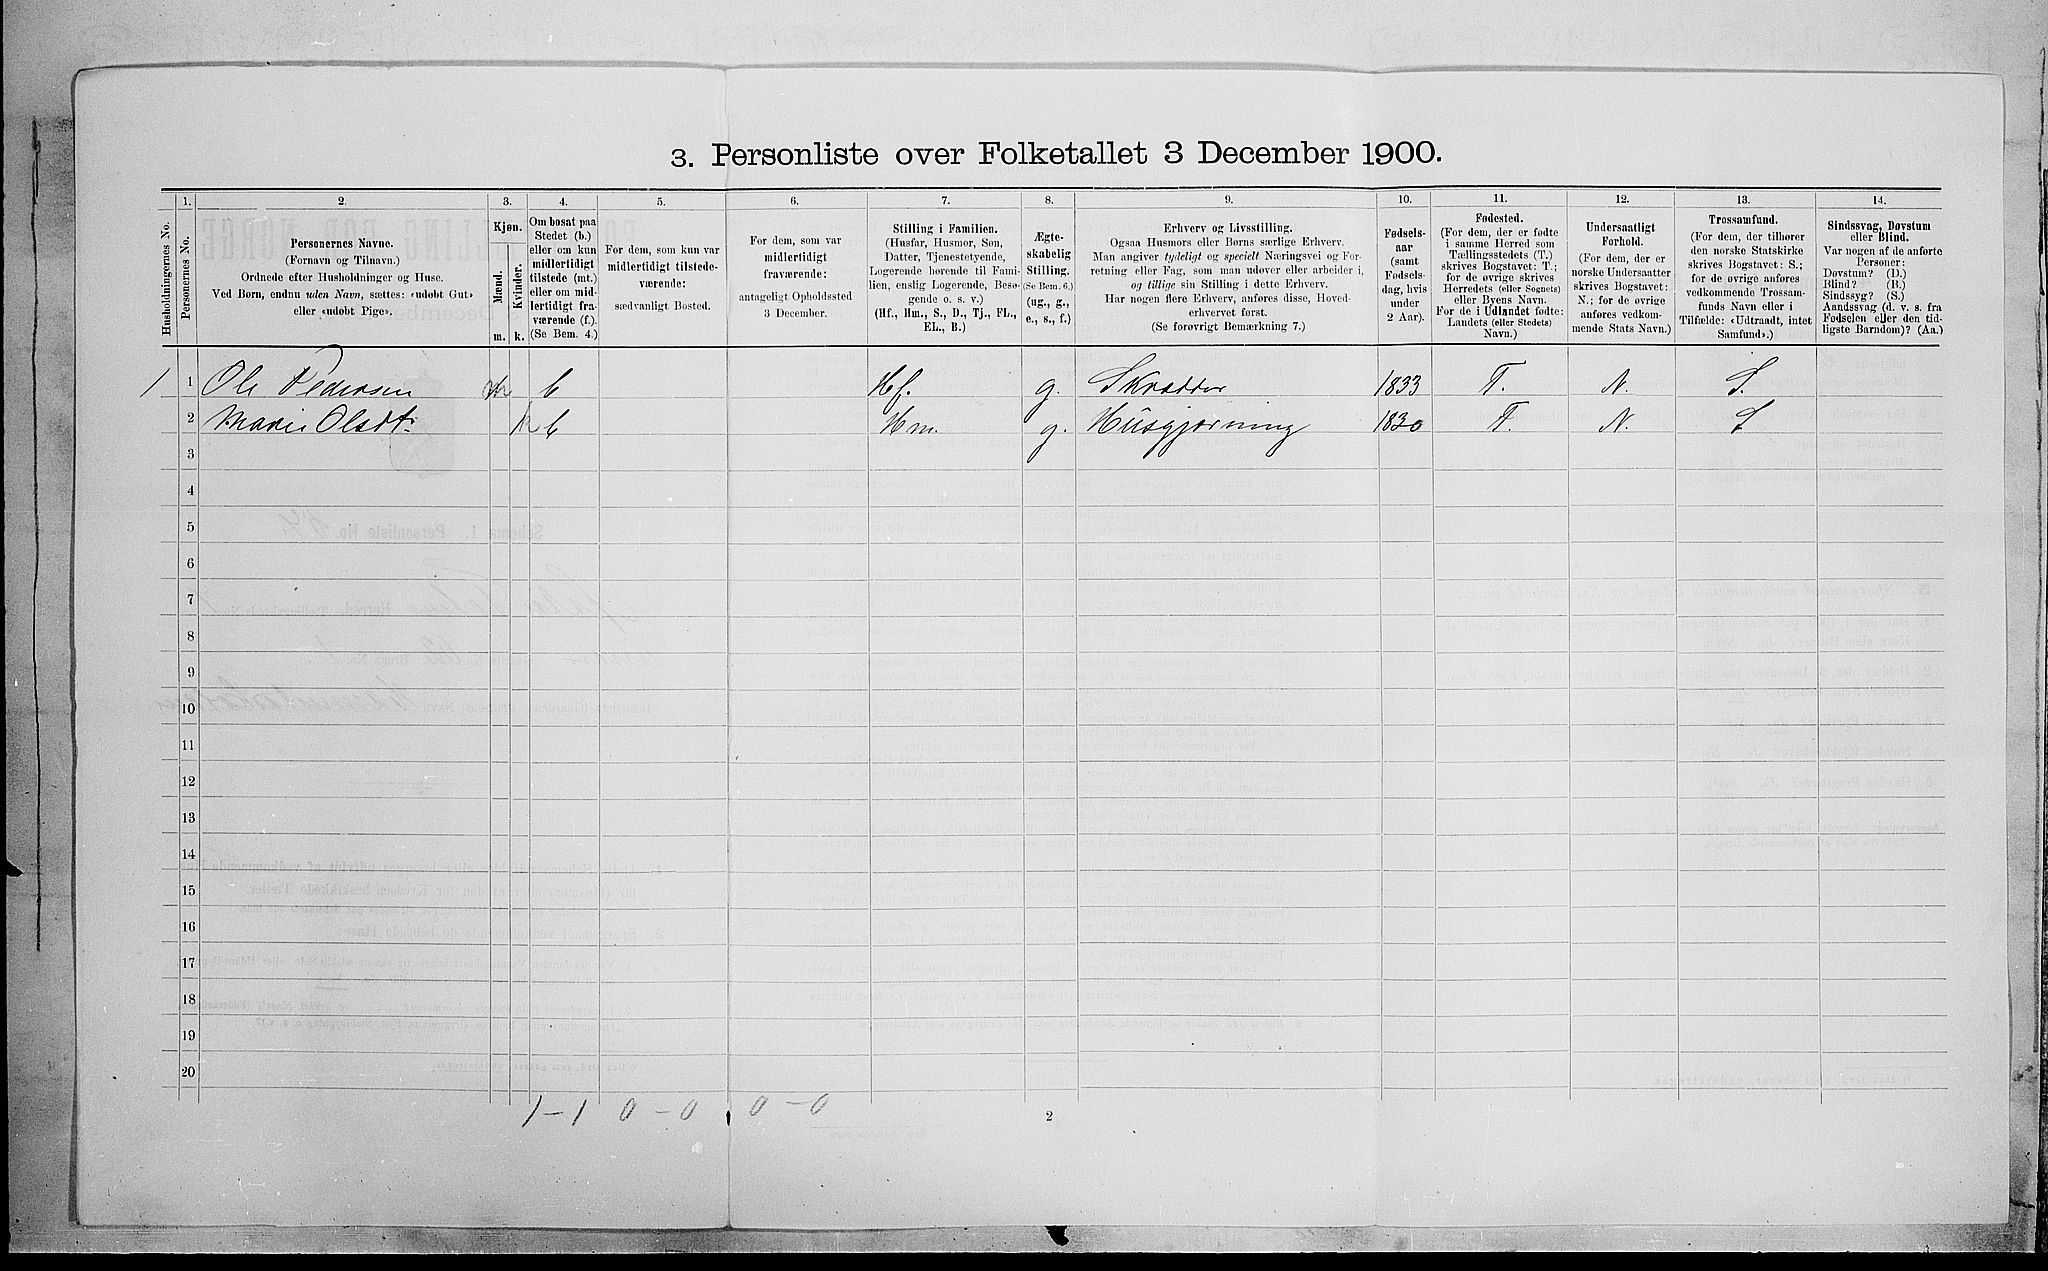 3. Personliste over Folketallet 3 December 1900.
1. 2. 3. 4. 5. 6. 7. 8. 9. 10. 11. 12. 13. 14.
Husholdningernes No.
Personernes No.
Personernes Navne.
(Fornavn og Tilnavn.)
Ordnede efter Husholdninger og Huse.
Ved Børn, endnu uden Navn, sættes: «udøbt Gut»
eller «udøbt Pige».
Kjøn.
Mænd.
Kvinder.
m. k.
Om bosat paa
Stedet (b.)
eller om kun
midlertidigt
tilstede (mt.)
eller om mid-
lertidigt fra-
værende (f.).
(Se Bem. 4.)
For dem, som kun var
midlertidigt tilstede-
værende:
sædvanligt Bosted.
For dem, som var
midlertidigt
fraværende:
antageligt Opholdssted
3 December.
Stilling i Familien.
(Husfar, Husmor, Søn,
Datter, Tjenestetyende,
Logerende hørende til Fami-
lien, enslig Logerende, Besø-
gende o. s. v.)
(Hf., Hm., S., D., Tj., FL.,
EL., B.)
Ægte-
skabelig
Stilling.
(Se Bem. 6.)
(ug., g.,
e., s., f.)
Erhverv og Livsstilling.
Ogsaa Husmors eller Børns særlige Erhverv.
Man angiver tydeligt og specielt Næringsvei og For-
retning eller Fag, som man udøver eller arbeider i,
og tillige sin Stilling i dette Erhverv.
Har nogen flere Erhverv, anføres disse, Hoved-
erhvervet først.
(Se forøvrigt Bemærkning 7.)
Fødsels-
aar
(samt
Fødsels-
dag, hvis
under
2 Aar).
Fødested.
(For dem, der er fødte
i samme Herred som
Tællingsstedets (T.)
skrives Bogstavet: T.;
for de øvrige skrives
Herredets (eller Sognets)
eller Byens Navn.
For de i Udlandet fødte:
Landets (eller Stedets)
Navn.)
Undersaatligt
Forhold.
(For dem, der er
norske Undersaatter
skrives Bogstavet:
N.; for de øvrige
anføres vedkom-
mende Stats Navn.)
Trossamfund.
(For dem, der tilhører
den norske Statskirke
skrives Bogstavet: S.;
for de øvrige anføres
vedkommende Trossam-
funds Navn eller i
Tilfælde: «Udtraadt, intet
Samfund».)
Sindssvag, Døvstum
eller Blind.
Var nogen af de anførte
Personer:
Døvstum? (D.)
Blind? (B.)
Sindssyg? (S.)
Aandssvag (d. v. s. fra
Fødselen eller den tid-
ligste Barndom)? (Aa.)
1 1 Ole Pedersen m b Hf. g. Skrædder 1833 T. N. S.
2 Marie Olsdt: k b Hm. g. Husgjerning 1830 T. N. S
3
4
5
6
7
8
9
10
11
12
13
14
15
16
17
18
19
20
1 – 1 0 – 0 0 – 0
2